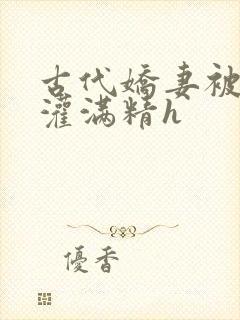 古代嬌妻被
灌滿精h
優香